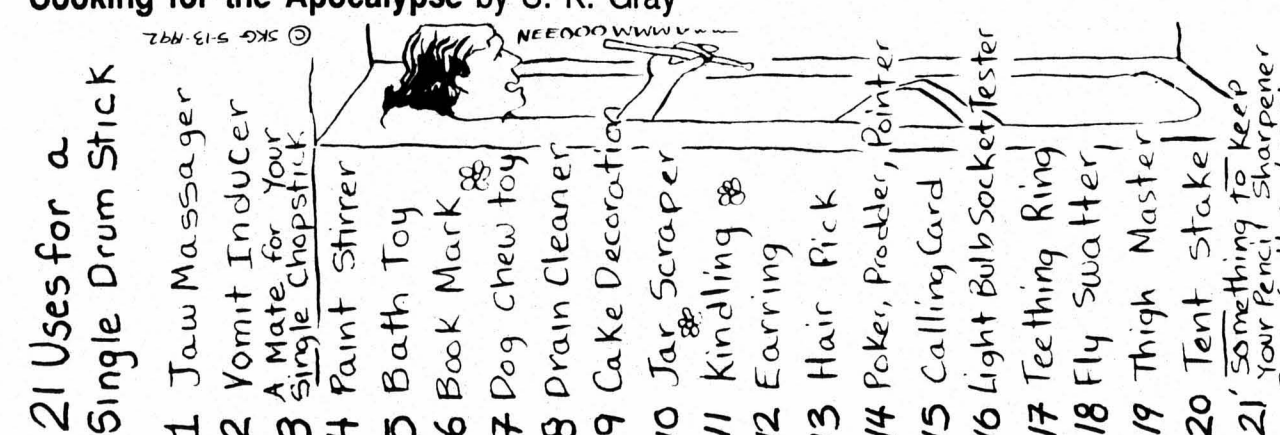 Cooking for the Apocalypse by S. R. Gray
© SKG 5-13-1992
NEEOOOWWWWwww
21 Uses for a
Single Drum Stick
1 Jaw Massager
2 Vomit Inducer
3 A Mate for Your
Single Chopstick
4 Paint Stirrer
5 Bath Toy
6 Book Mark
7 Dog Chew toy
8 Drain Cleaner
9 Cake Decoration
10 Jar Scraper
11 Kindling
12 Earring
13 Hair Pick
14 Poker, Prodder, Pointer
15 Calling Card
16 Light Bulb Socket Tester
17 Teething Ring
18 Fly Swatter
19 Thigh Master
20 Tent Stake
21 Something to Keep
Your Pencil Sharpener